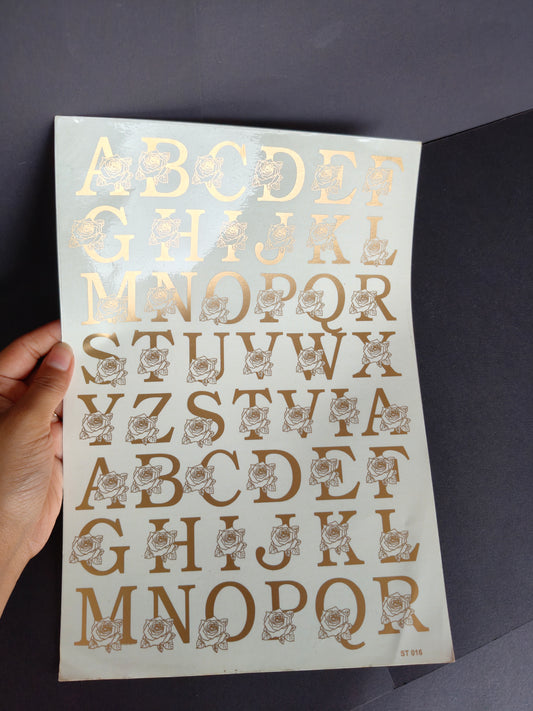 ABCDEF
GHIJKL
MNOPQR
STUVWX
YZSTVIA
ABCDEF
GHIJKL
MNOPQR
ST 016